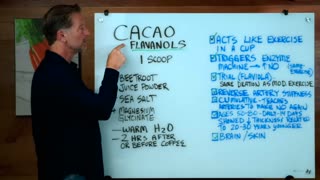 CACAO
FLAVANOLS
1 SCOOP
BEETROOT
JUICE POWDER
SEA SALT
+ MAGNESIUM
GLYCINATE
— WARM H2O
— 2 HRS AFTER
OR BEFORE COFFEE
ACTS LIKE EXERCISE
IN A CUP
TRIGGERS ENZYME
MACHINE → ↑ NO
TRIAL (FLAVIOLA)
SAME DILATION AS MOD. EXERCISE
REVERSE ARTERY STIFFNESS
CUMULATIVE - TEACHES
ARTERIES TO MAKE NO AGAIN
AGES 50-80 - DAILY - DAYS
SHOWED ↓ RELATED
TO 20-30 YEARS YOUNGER
BRAIN / SKIN